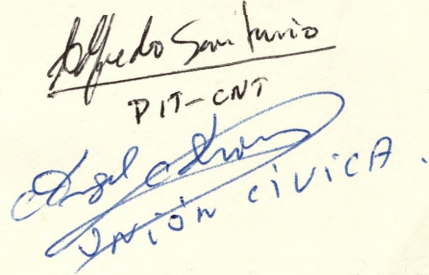 Alfredo Santurio
PIT-CNT
Angel
UNIÓN CÍVICA.